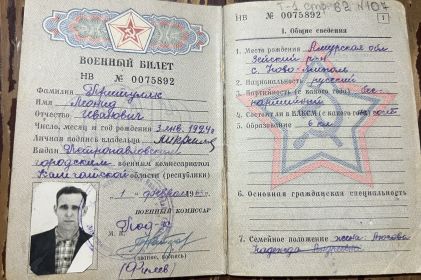 ВОЕННЫЙ БИЛЕТ
НВ № 0075892
Фамилия
Имя Леонид
Отчество Иванович
Число, месяц и год рождения 3 янв. 1924г
Личная подпись владельца
Выдан Петропавловским
городским военным комиссариатом
Камчатской области (республики)
1 февраля
ВОЕННЫЙ КОМИССАР
М. П.
(звание, подпись)
НВ № 0075892
1
I. Общие сведения
1. Место рождения Амурская обл.
Зейский р-н
с. Ново-
2. Национальность русский
3. Партийность (с какого года) бес-
партийный
4. Состоит ли в ВЛКСМ (с какого года) не сост
5. Образование 6 кл
6. Основная гражданская специальность
7. Семейное положение жена
Надежда